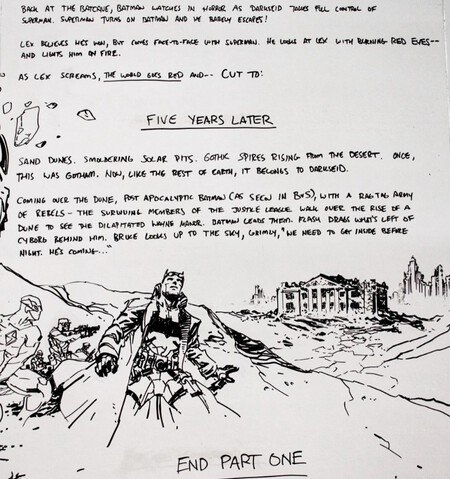 BACK AT THE BATCAVE, BATMAN WATCHES IN HORROR AS DARKSEID TAKES FULL CONTROL OF
SUPERMAN. SUPERMAN TURNS ON BATMAN AND HE BARELY ESCAPES!
LEX BELIEVES HE'S WON, BUT COMES FACE-TO-FACE WITH SUPERMAN. HE LOOKS AT LEX WITH BURNING RED EYES--
AND LIGHTS HIM ON FIRE.
AS LEX SCREAMS, THE WORLD GOES RED AND-- CUT TO:
FIVE YEARS LATER
SAND DUNES. SMOLDERING SOLAR PITS. GOTHIC SPIRES RISING FROM THE DESERT. ONCE,
THIS WAS GOTHAM. NOW, LIKE THE REST OF EARTH, IT BELONGS TO DARKSEID.
COMING OVER THE DUNE, POST APOCALYPTIC BATMAN (AS SEEN IN BvS), WITH A RAGTAG ARMY
OF REBELS - THE SURVIVING MEMBERS OF THE JUSTICE LEAGUE. WALK OVER THE RISE OF A
DUNE TO SEE THE DILAPITATED WAYNE MANOR. BATMAN LEADS THEM. FLASH DRAGS WHAT'S LEFT OF
CYBORG BEHIND HIM. BRUCE LOOKS UP TO THE SKY, GRIMLY, "WE NEED TO GET INSIDE BEFORE
NIGHT. HE'S COMING..."
END PART ONE